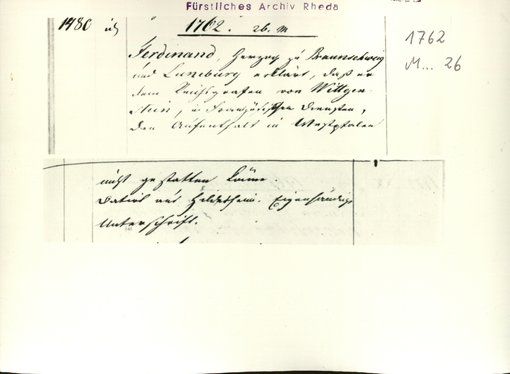 Fürstliches Archiv Rheda
1480 1762. 26. M
Ferdinand, Herzog zu Braunschweig
und Lüneburg erklärt, daß er
dem Reichsgrafen von Wittgen-
stein, in Französischen Diensten,
den Aufenthalt in Westphalen
nicht gestatten könne
Datirt aus Hildesheim. Eigenhändige
Unterschrift.
1762
M... 26